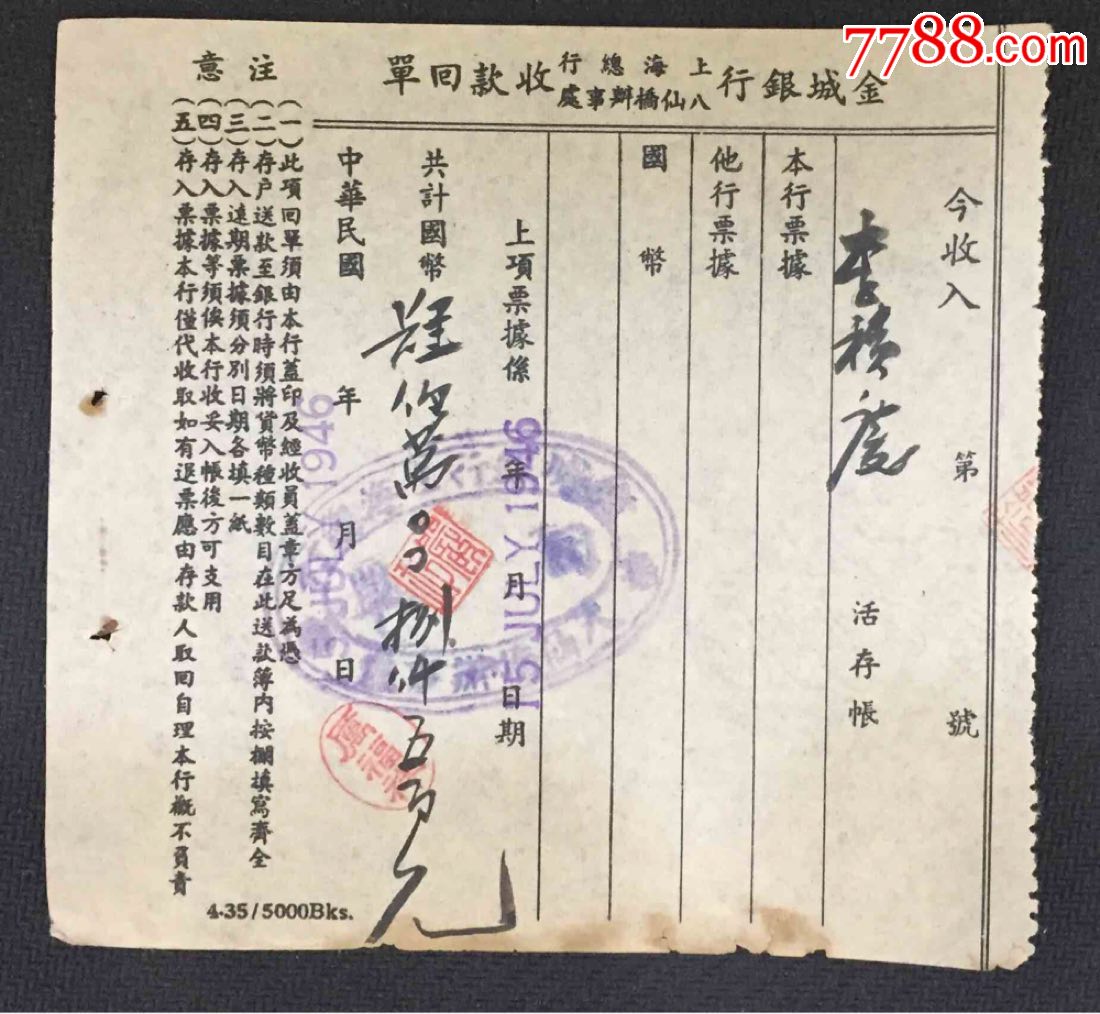 7788.com
金城銀行上海總行八仙橋辦事處收款回單
今收入 第 號
李積慶 活存帳
本行票據
他行票據
國幣
上項票據係 年 月 日期
共計國幣 萬 捌仟五百元
中華民國 年 月 日
15 JULY 1946
15 JULY 1946
注意
(一)此項回單須由本行蓋印及經收員蓋章方足為憑
(二)存户送款至銀行時須將貨幣種類數目在此送款簿内按欄填寫齊全
(三)存入遠期票據須分別日期各填一紙
(四)存入票據等須俟本行收妥入帳後方可支用
(五)存入票據本行僅代收取如有退票應由存款人取回自理本行概不負責
4-35/5000Bks.